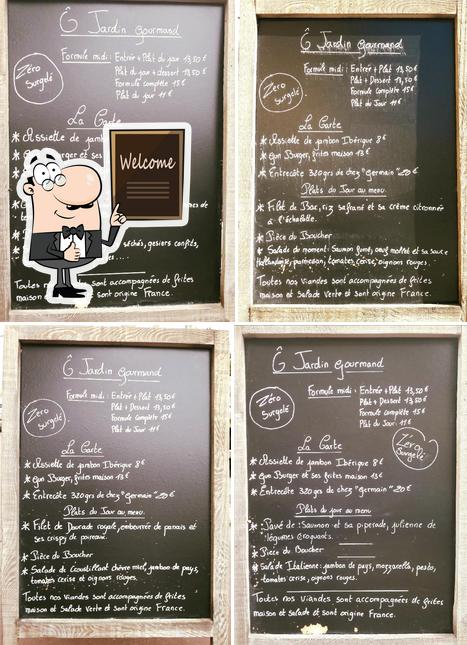 Ô Jardin Gourmand
Formule midi : Entrée + Plat du jour 13,50€
Plat du jour + Dessert 13,50€
Formule complète 15€
Plat du jour 11€
Zéro
Surgelé
La Carte
* Assiette de jamb
ger et ses
Welcome
séchés, gesiers confits,
Toutes sont accompagnées de frites
maison sont origine France.
Ô Jardin Gourmand
Formule midi : Entrée + Plat 13,50€
Plat + Dessert 13,50€
Formule complète 15€
Plat du Jour 11€
Zéro
Surgelé
La Carte
* Assiette de jambon Ibérique 8€
* Gun Burger, frites maison 13€
* Entrecôte 320grs de chez "Germain" 20€
Plats du Jour au menu
* Filet de Bar, riz safrané et sa crème citronnée
à l'échalotte.
* Pièce du Boucher
* Salade du moment: Saumon fumé, oeuf mollet et sa sauce
hollandaise, parmesan, tomates cerise, oignons rouges.
Toutes nos viandes sont accompagnées de frites
maison et Salade verte et sont origine France.
Ô Jardin Gourmand
Formule midi : Entrée + Plat 13,50€
Plat + Dessert 13,50€
Formule complète 15€
Plat du Jour 11€
Zéro
Surgelé
La Carte
* Assiette de jambon Ibérique 8€
* Gun Burger, frites maison 13€
* Entrecôte 320grs de chez "Germain" 20€
Plats du Jour au menu
* Filet de Daurade royale, embeurrée de panais et
ses crispy de poireaux.
* Pièce du Boucher
* Salade de Croustillant chèvre miel, jambon de pays,
tomates cerise et oignons rouges.
Toutes nos viandes sont accompagnées de frites
maison et Salade verte et sont origine France.
Ô Jardin Gourmand
Formule midi : Entrée + Plat 13,50€
Plat + Dessert 13,50€
Formule complète 15€
Plat du Jour 11€
Zéro
Surgelé
Zéro
Surgelé
La Carte
* Assiette de jambon Ibérique 8€
* Gun Burger et ses frites maison 13€
* Entrecôte 320grs de chez "Germain" 20€
Plats du jour au menu
* Pavé de Saumon et sa piperade, julienne de
légumes croquants.
* Pièce du Boucher
* Salade Italienne: jambon de pays, mozzarella, pesto,
tomates cerise, oignons rouges.
Toutes nos viandes sont accompagnées de frites
maison et salade et sont origine France.